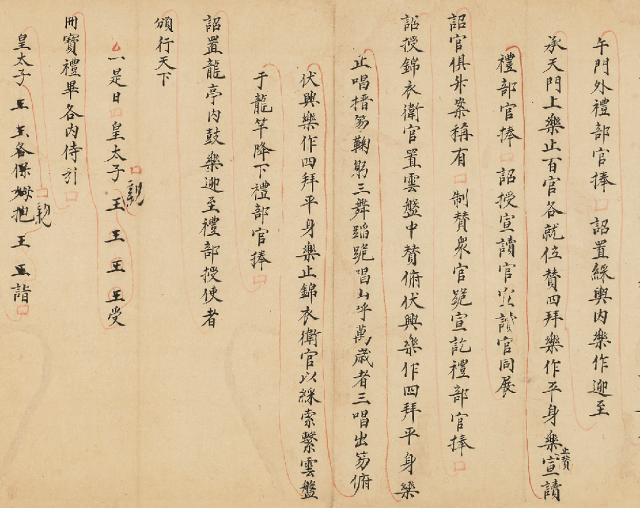 午門外禮部官捧詔置綵輿內樂作迎至
承天門上樂止百官各就位贊四拜樂作平身樂止贊宣讀
禮部官捧詔授宣讀官宣讀官同展
詔官俱升案稱有制贊衆官跪宣訖禮部官捧
詔授錦衣衛官置雲盤中贊俯伏興樂作四拜平身樂
止唱搢笏鞠躬三舞蹈跪唱山呼萬歲者三唱出笏俯
伏興樂作四拜平身樂止錦衣衛官以綵索繫雲盤
于龍竿降下禮部官捧
詔置龍亭內鼓樂迎至禮部授使者
頒行天下
一是日皇太子親王王王王受
冊寶禮畢各內侍引
皇太子親王王各保姆抱王王詣